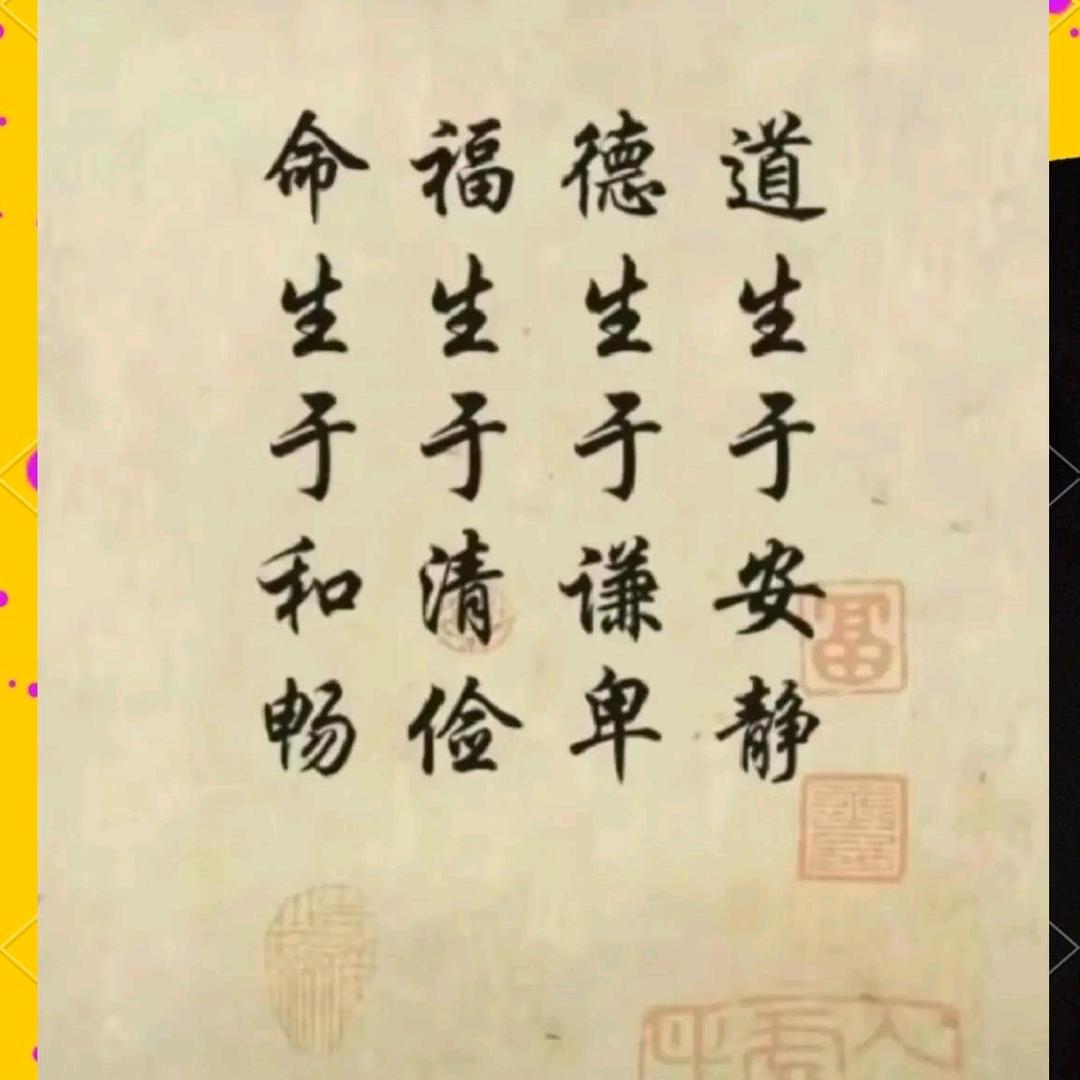 道生于安静
德生于谦卑
福生于清俭
命生于和畅